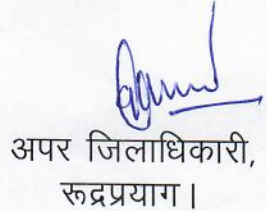 अपर जिलाधिकारी,
रूद्रप्रयाग।